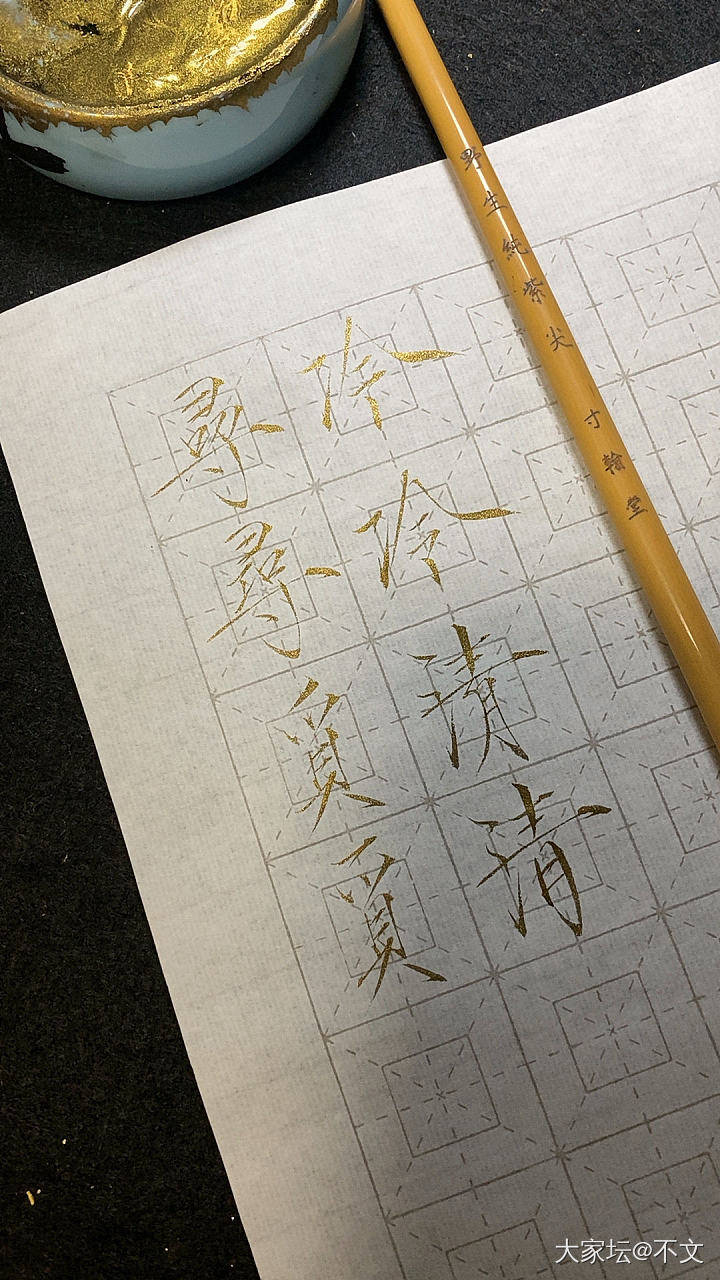 尋尋覓覓
冷冷清清
野生純紫尖 寸翰堂
大家坛@不文